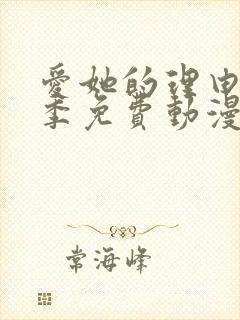 愛她的理由
季免費動漫
常海峰